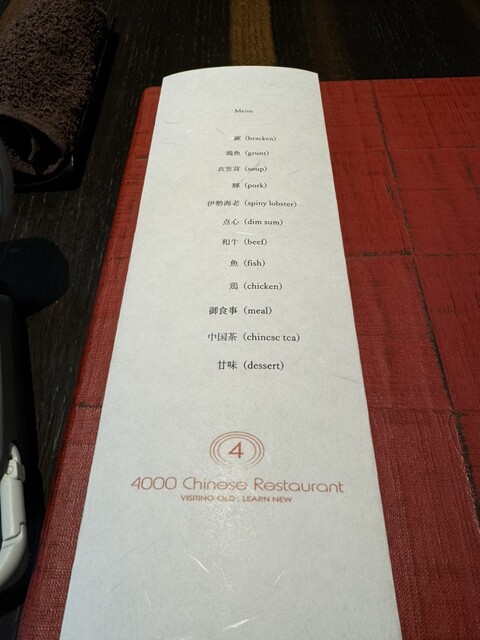 Menu
蕨（bracken）
鶏魚（grunt）
衣笠茸（soup）
豚（pork）
伊勢海老（spiny lobster）
点心（dim sum）
和牛（beef）
魚（fish）
鶏（chicken）
御食事（meal）
中国茶（chinese tea）
甘味（dessert）
4
4000 Chinese Restaurant
VISITING OLD , LEARN NEW